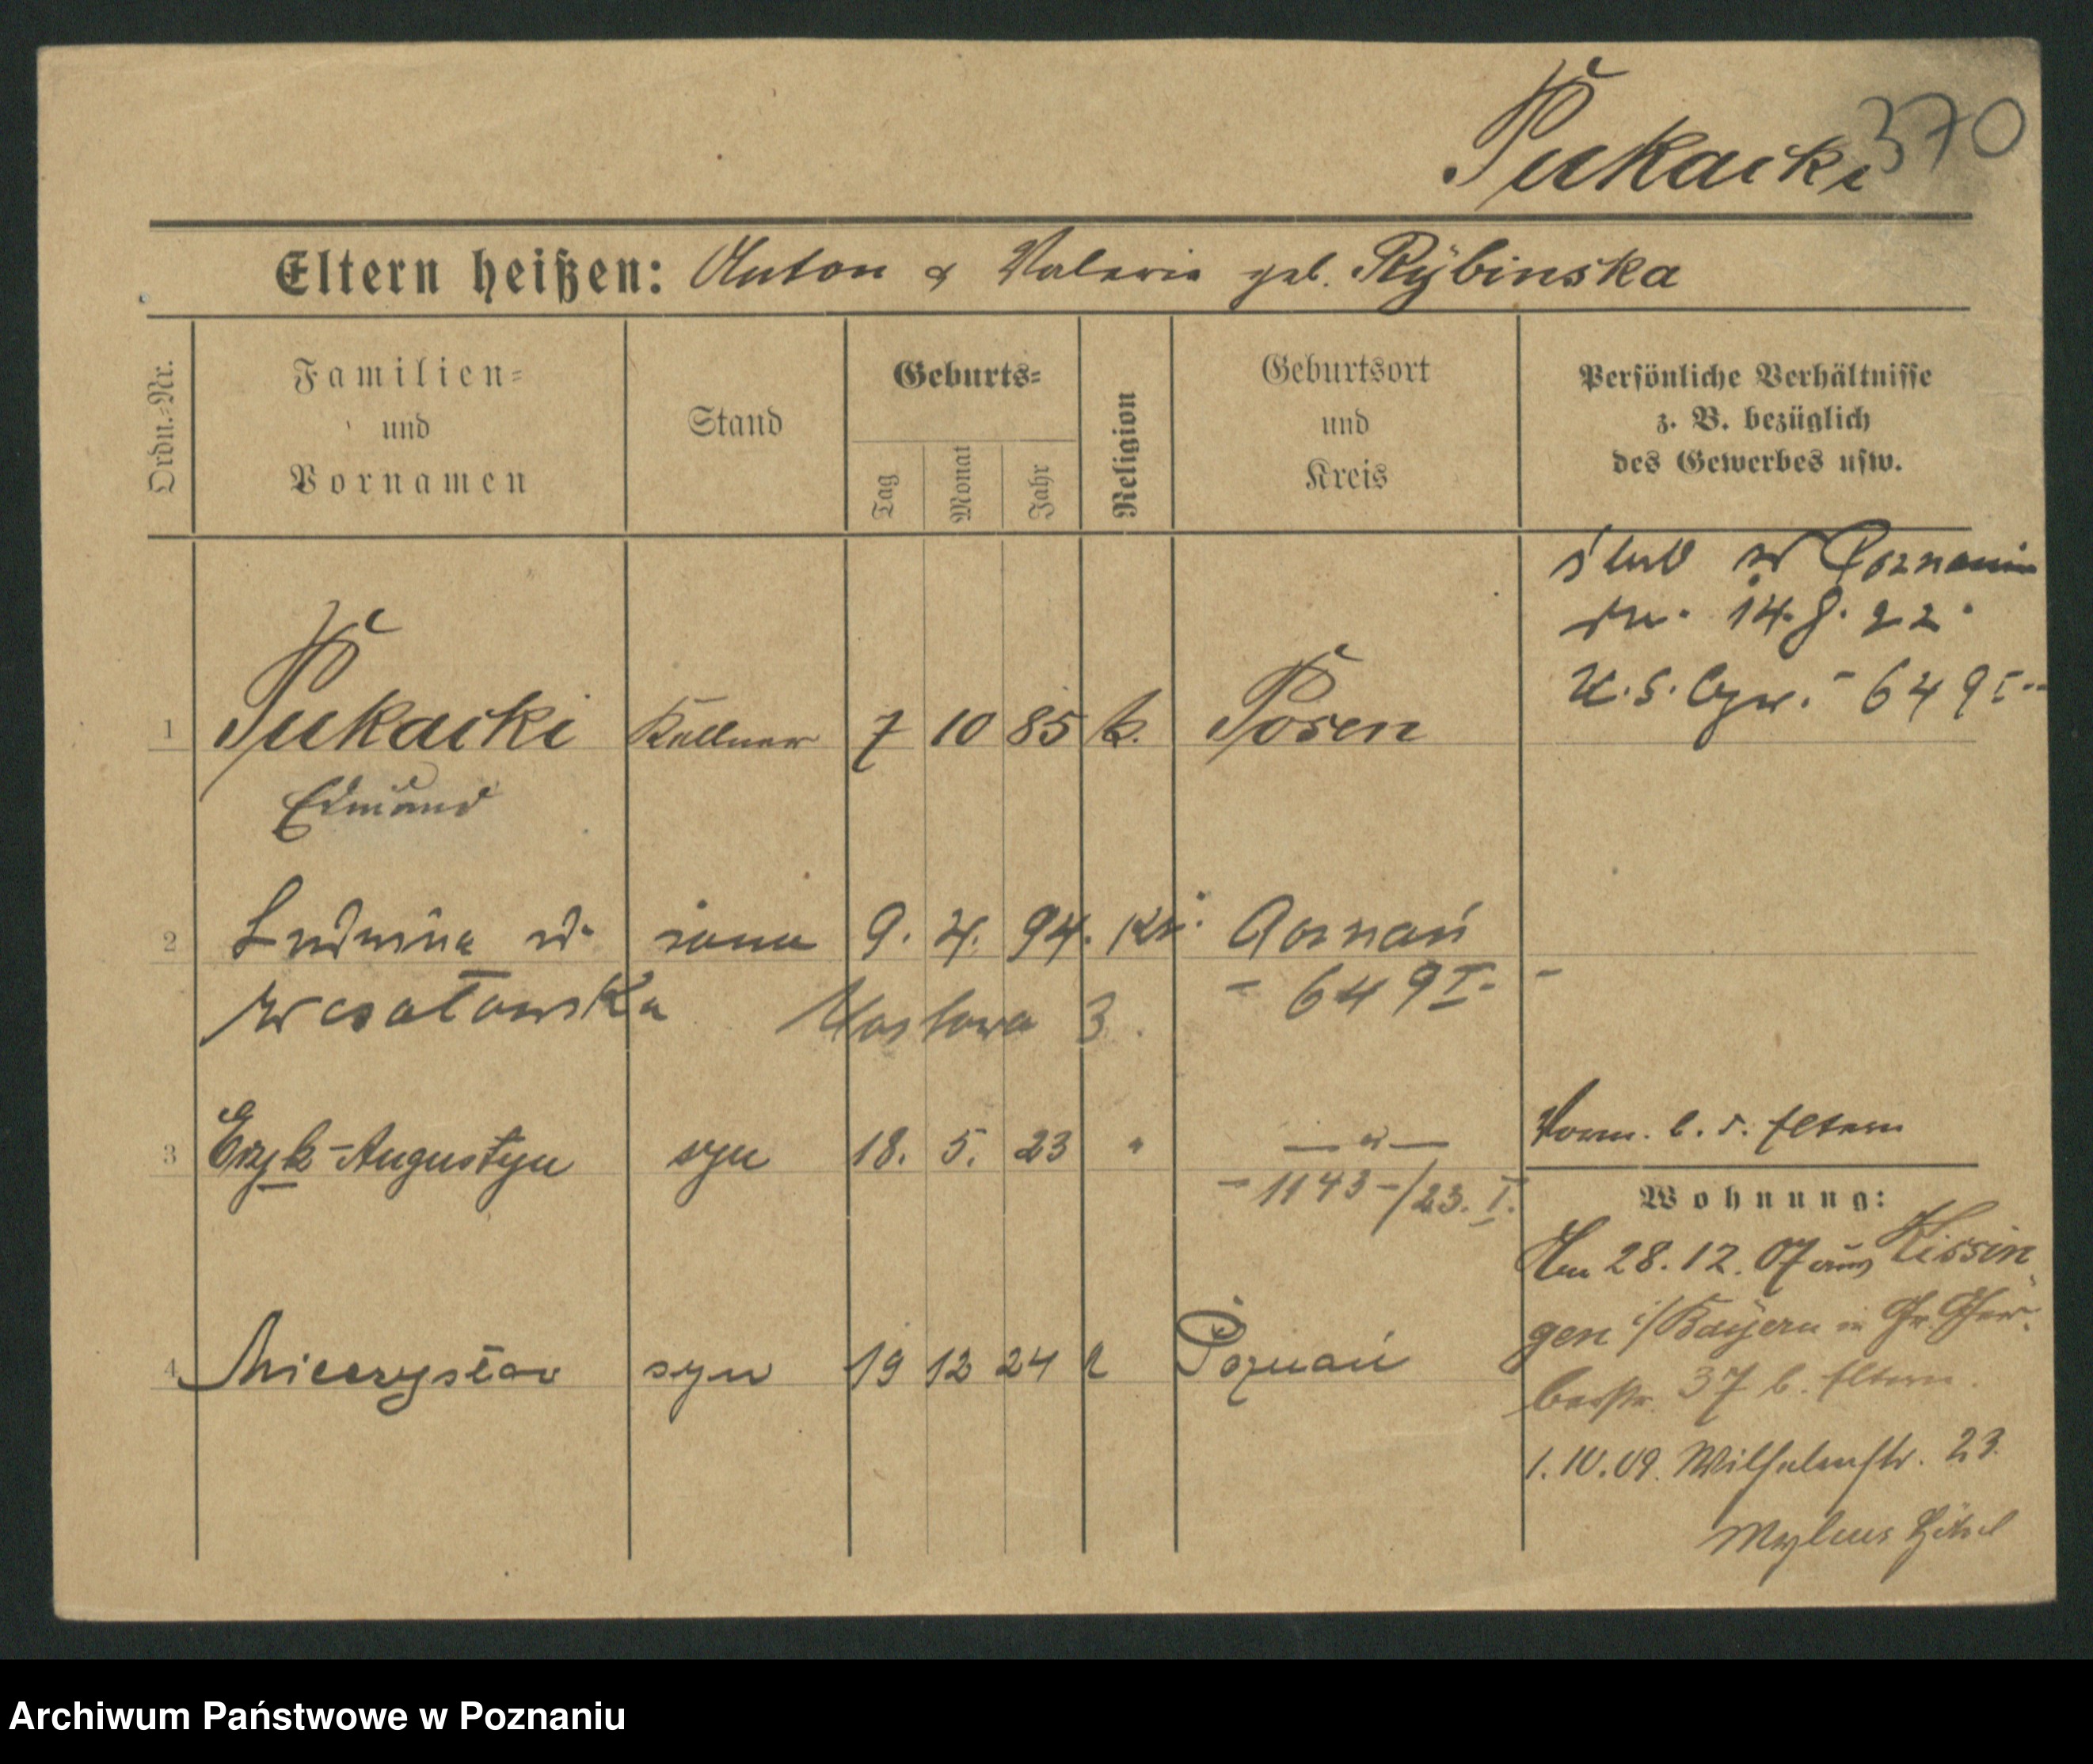 Pukacki 370
Eltern heißen: Anton & Valeria geb. Rÿbinska
Ordn.-Nr.
Familien-
und
Vornamen
Stand
Geburts-
Tag
Monat
Jahr
Religion
Geburtsort
und
Kreis
Persönliche Verhältnisse
z. B. bezüglich
des Gewerbes usw.
ślub w Poznaniu
14.8.22.
U.S. - 649 I -
1 Pukacki Kellner 7 10 85 k. Posen
Edmund
2 Ludwina żona 9. 4. 94. Poznań
- 649 I - -
3 Eryk-Augustyn syn 18. 5. 23 "
- 1143 - /23. I.
Vorm. b. d. Eltern
Wohnung:
Am 28.12.07 aus Kissin
gen i/Bayern in Gr. Ger-
berstr. 37 b. Eltern.
4 Mieczysław syn 19 12 24 Poznań
1.10.09. Wilhelmstr. 23
Mylius Hôtel
Archiwum Państwowe w Poznaniu